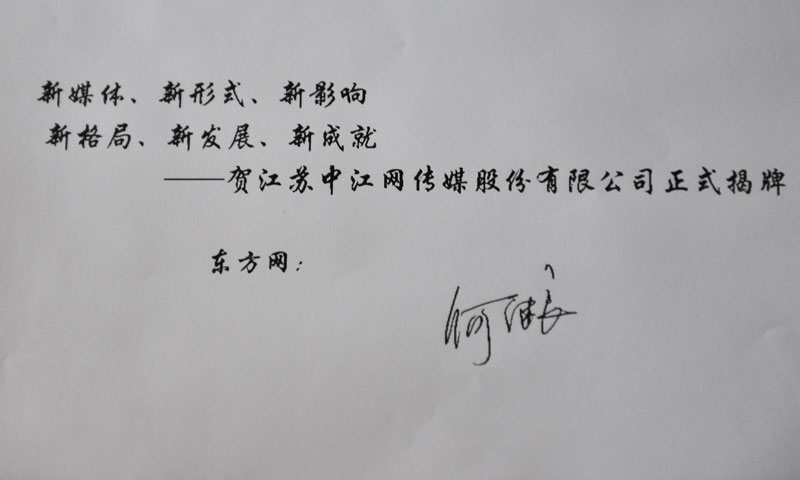 新媒体、新形式、新影响
新格局、新发展、新成就
——贺江苏中江网传媒股份有限公司正式揭牌
东方网：
何继良